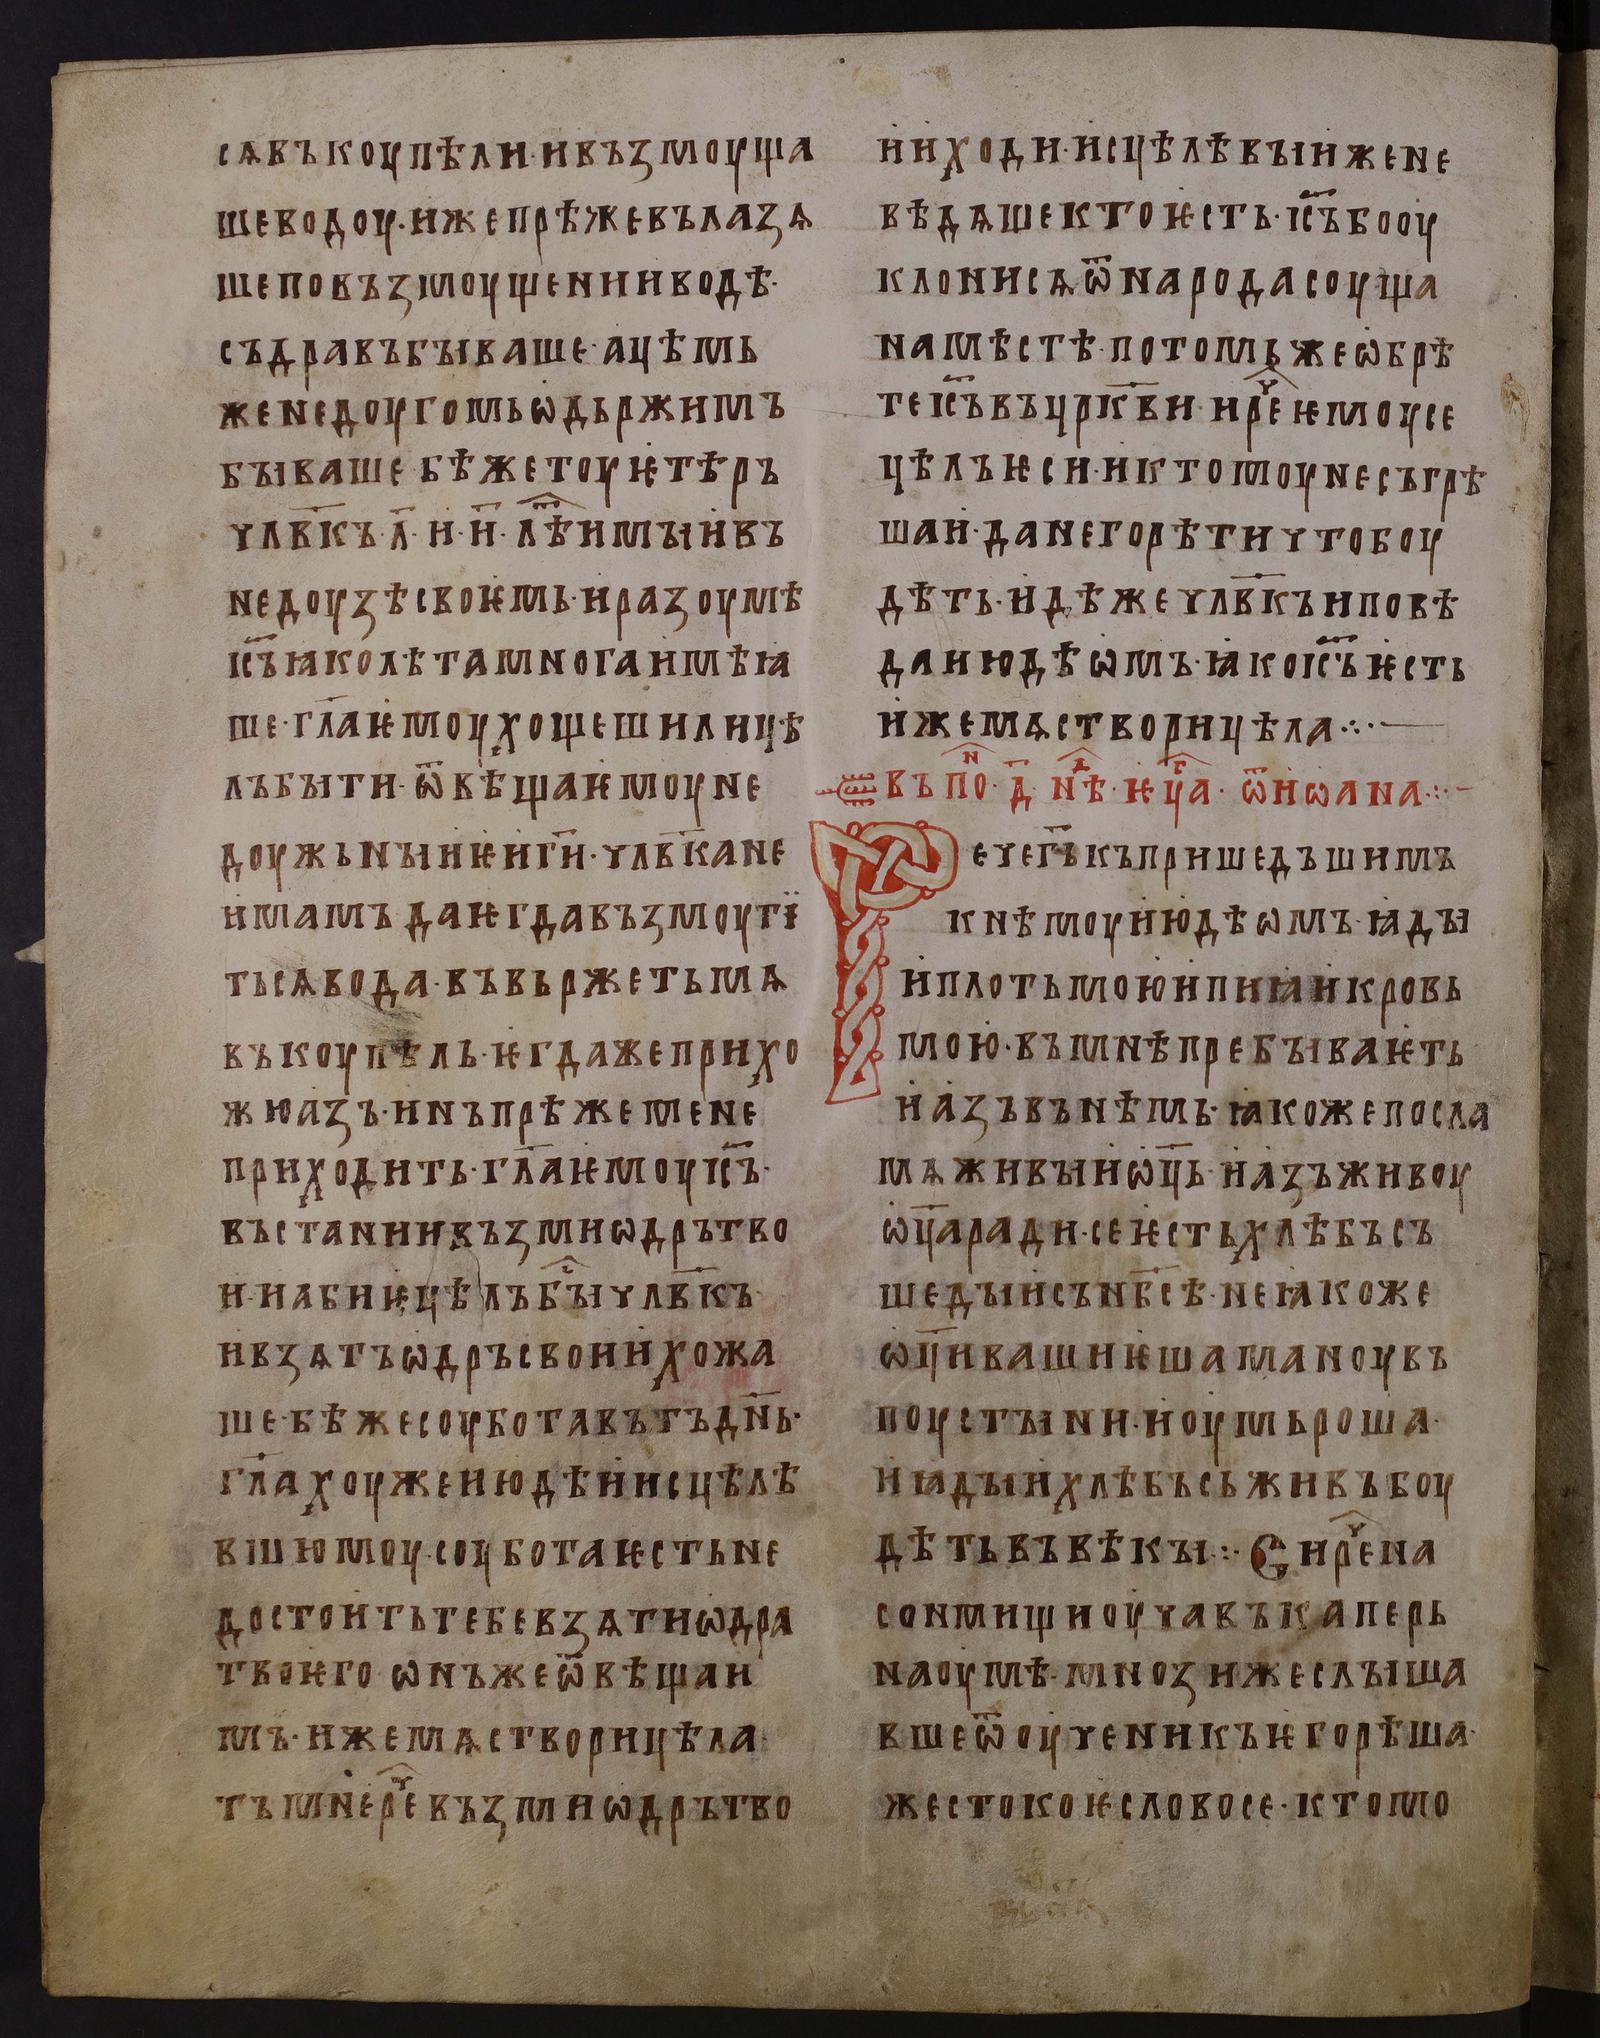 сѧвъкоупѣли·ивъꙁмоуща
шеводоу·ижепрѣжевълаꙁѧ
шеповъꙁмоущениивподѣ·
съдравъбываше·ацѣмь
женедоугомьѡдьржимъ
бываше·бѣжетоуѥтѣръ
члв҃къ·л҃·и·и҃·лѣⷮимыивъ
недоуꙁѣсвоѥмь·ираꙁоумѣ
іс҃ъꙗколѣтамногаимѣꙗ
ше·гл҃аѥмоухощешилицѣ
лъбыти·ѿвѣщаѥмоуне
доужьныиѥиги҃·члв҃кане
имамъдаѥгдавъꙁмоутї
тьсѧвода·въвьржетьмѧ
въкоупѣль·ѥгдажеприхо
жюаꙁъ·инъпрѣжемене
приходить·гл҃аѥмоуіс҃ъ·
въстанииивъꙁмиѡдрътво
и·иабиѥцѣлъбыⷭ҇члв҃къ
ивꙁѧтъѡдръсвоиихожа
ше·бѣжесоуботавътъдн҃ь·
гл҃ахоужеиюдѣиисцѣлѣ
вшюмоу·соуботаѥстьне
достоитьтебевꙁѧтиѡдра
твоѥго·ѡнъжеѿвѣщаи
мъ·ижемѧствориѡцѣла
тъмнереⷱ҇въꙁмиѡдрътво
ииходи·исцѣлѣвыижене
вѣдѧшектоѥсть·іс҃ъбооу
клонисѧѿнародасоуща
намѣстѣ·потомьжеѡбрѣ
теіс҃ъвъцр҃кви·иреⷱ҇ѥмоусе
цѣлъѥси·иктомоунесъгрѣ
шаи·данегорѣтичтобоу
дѣть·идѣжечлв҃къиповѣ
даиюдѣѡмъ·ꙗкоіс҃ъѥсть
ижемѧствориѡцѣла⁘—
въпоⷩ҇·д҃·нѣⷣ·ѥѵⷢ҇а·ѿиѡана⁘-
Речегь҃къпришедъшимъ
кнѣмоуиюдѣѡмъ·ꙗды
иплотьмоюипиꙗикровь
мою·въмнѣпребываѥть
иаꙁъвънѣмь·ꙗкожепосла
мѧживыиѡц҃ь·иаꙁъживоу
ѡц҃аради·сеѥстьхлѣбъсъ
шедыисънб҃сѣ·неꙗкоже
ѡц҃ивашиѥшамланоувъ
поустыни·иоумьроша·
иꙗдыихлѣбъсьживъбоу
дѣтьвъвѣкы⁘Сиреⷱ҇на
сонмищиоучавъкаперь
наоумѣ·мноꙁижеслыша
вшеѿоученикъѥгорѣша·
жестокоѥсловосе·ктомо